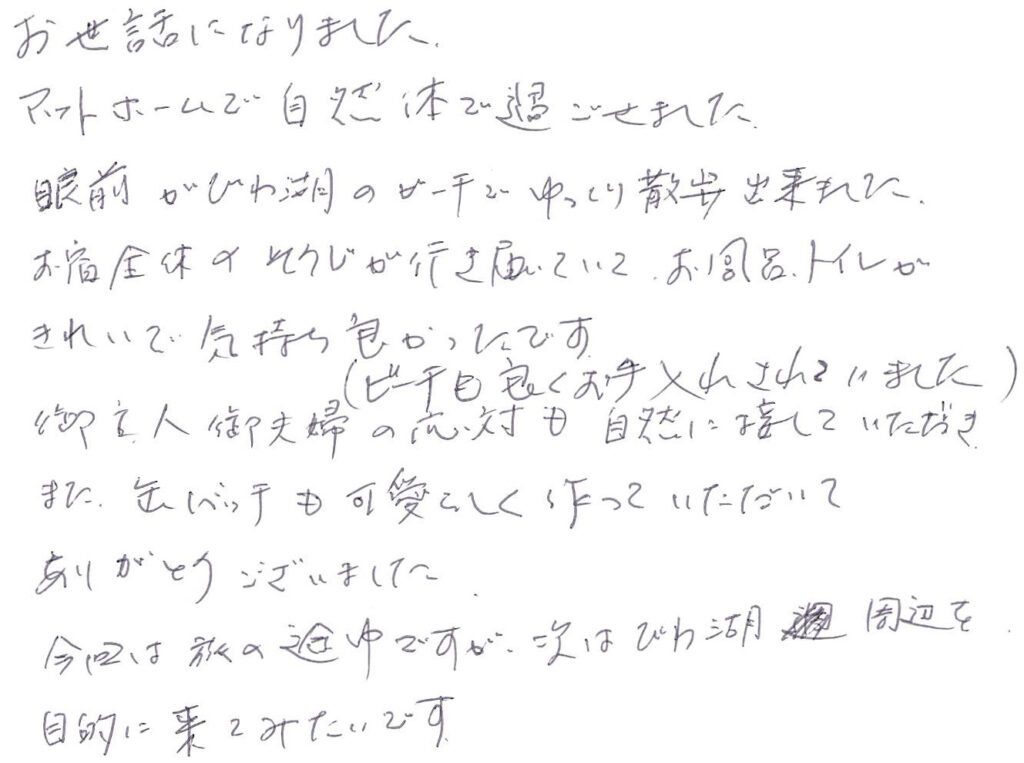 お世話になりました.
アットホームで自然体で過ごせました.
眼前がびわ湖のビーチでゆっくり散歩出来ました.
お宿全体のそうじが行き届いていて、お風呂、トイレが
きれいで気持ち良かったです
(ビーチも良くお手入れされていました)
御主人御夫婦の応対も自然に接していただき
また、缶バッチも可愛らしく作っていただいて
ありがとうございました
今回は旅の途中ですが、次はびわ湖周辺を
目的に来てみたいです